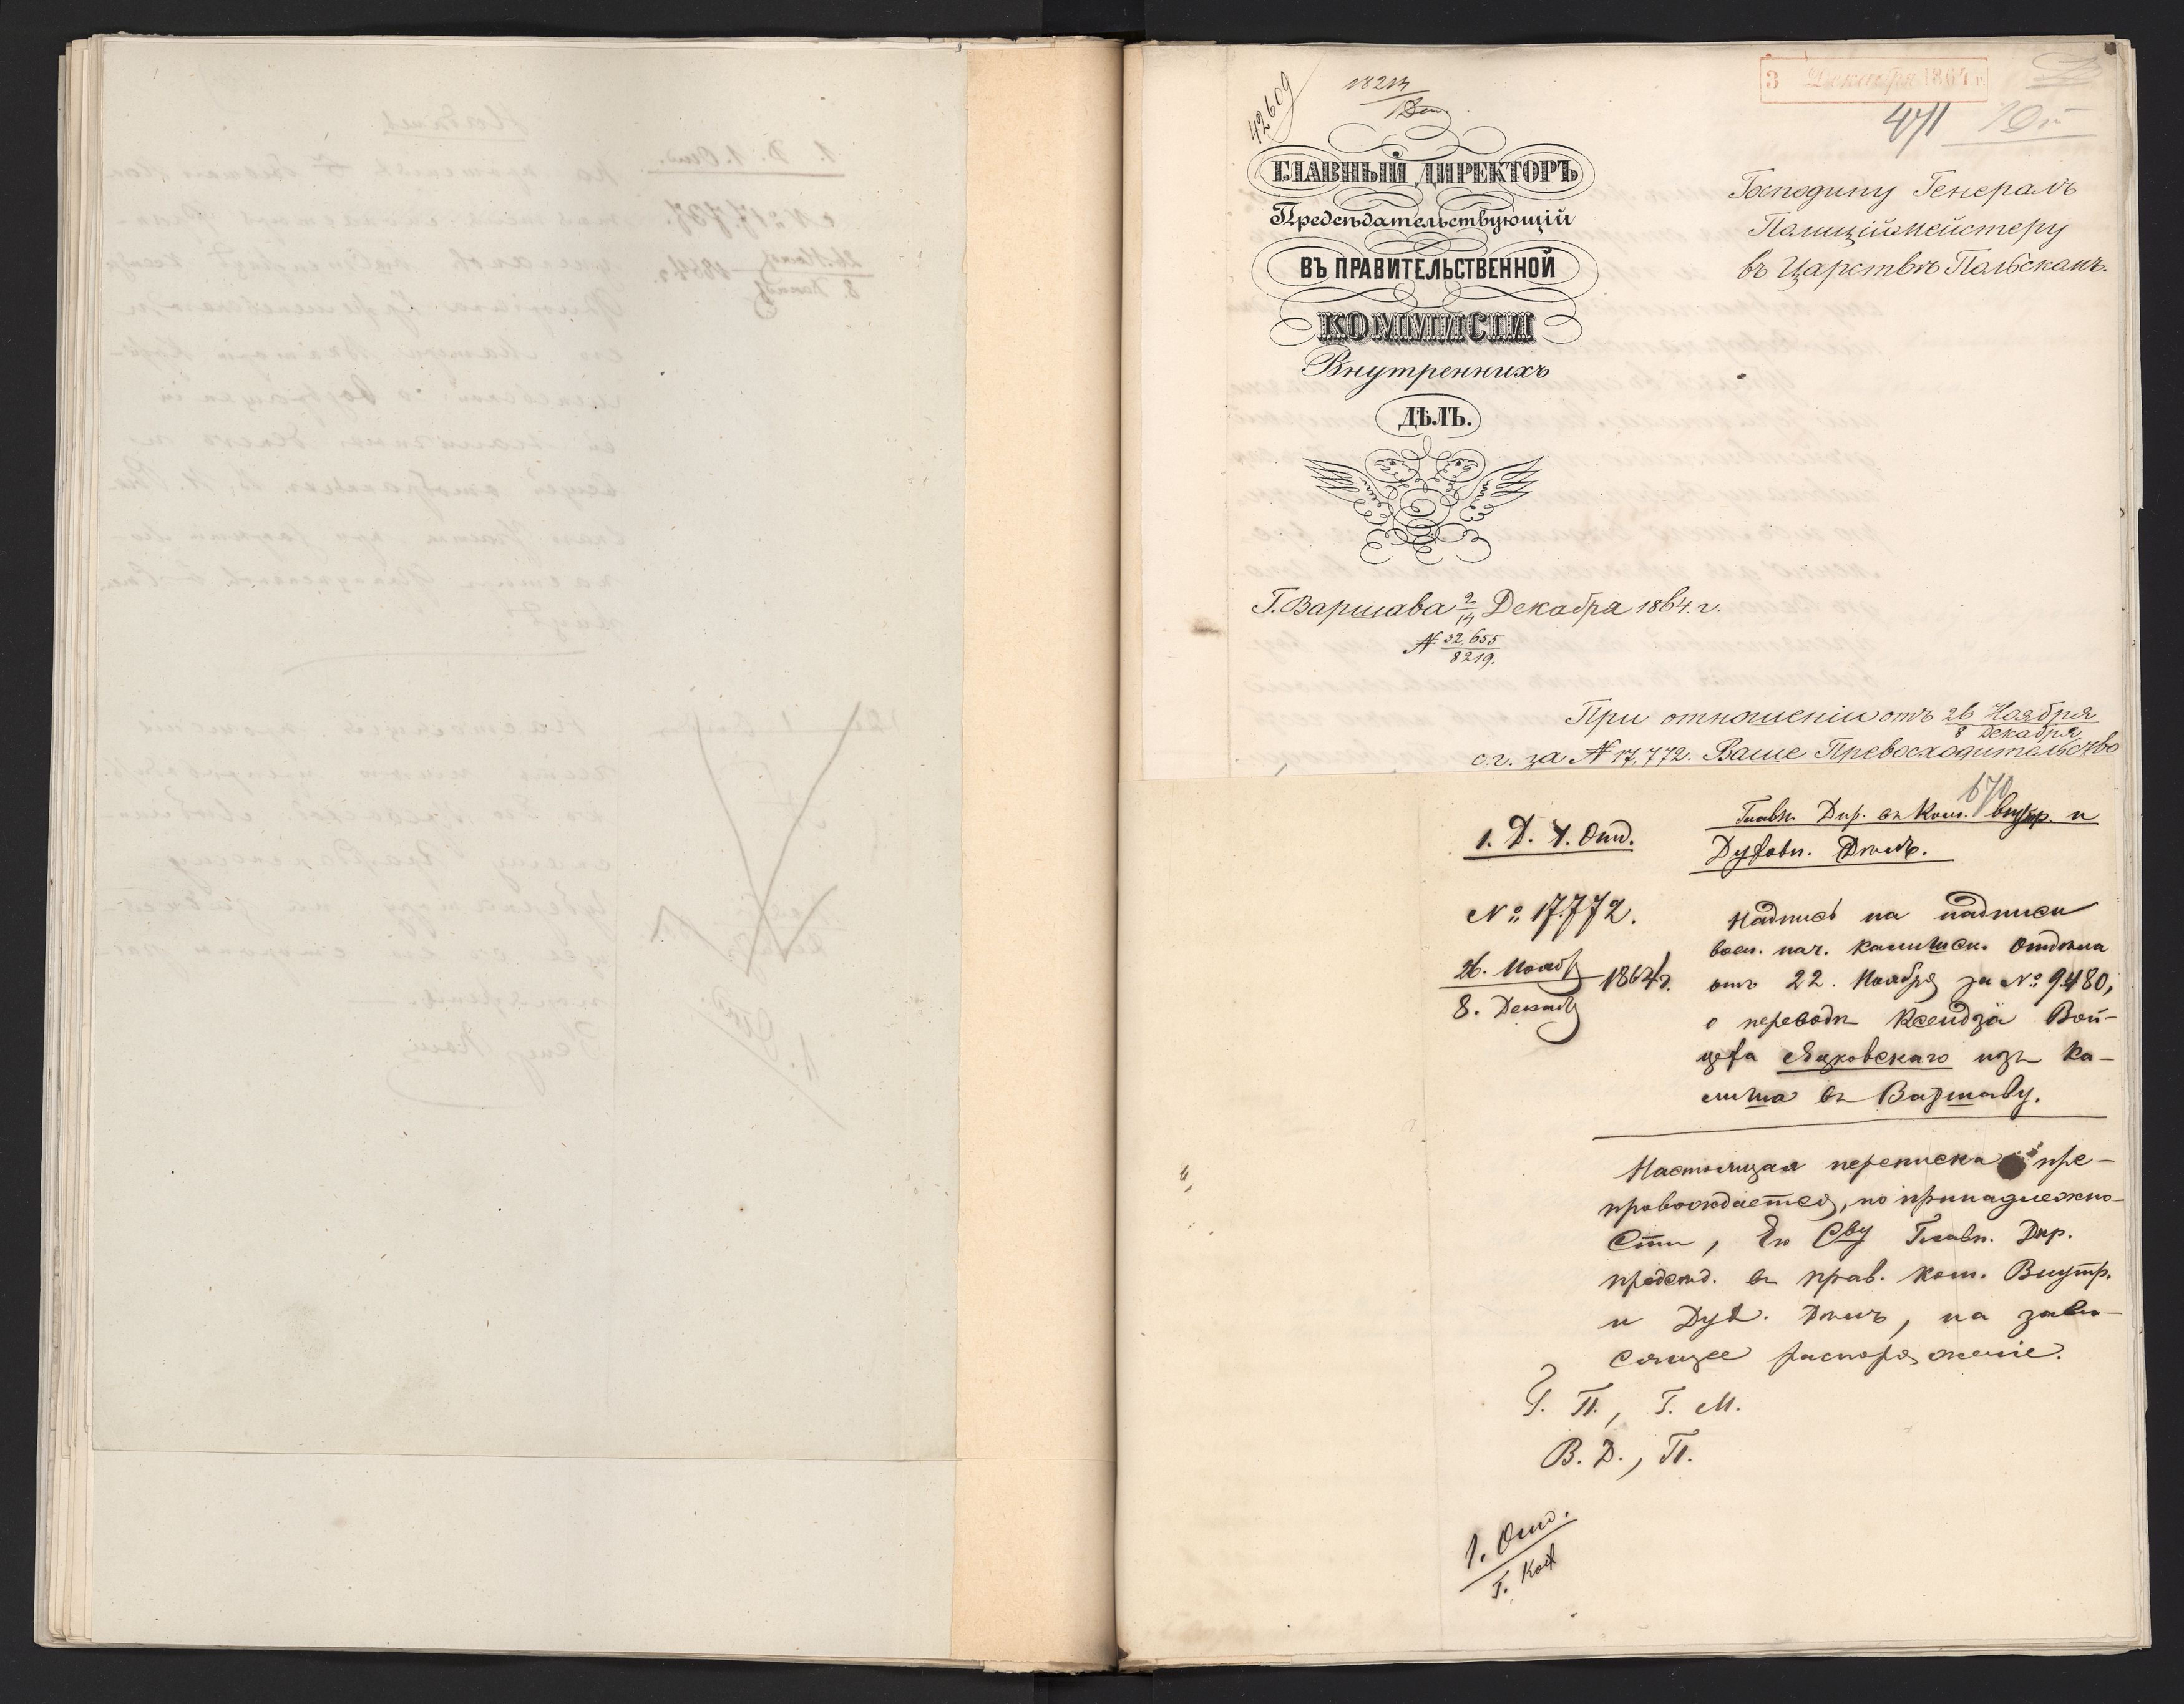 42609
18213
1 Дек
3 Декабря 1864 г.
471
ГЛАВНЫЙ ДИРЕКТОРЪ
Предсѣдательствующій
ВЪ ПРАВИТЕЛЬСТВЕННОЙ
КОММИСІИ
Внутреннихъ
ДѢЛЪ.
Господину Генералъ
Полиціймейстеру
въ Царствѣ Польскомъ.
Г. Варшава 2/14 Декабря 1864. г.
№ 32,655/8219.
При отношеніи отъ 26 Ноября/8 Декабря
с.г. за № 17,772. Ваше Превосходительство
670
1. Д. 1. Отд.
№ 17.772.
26. Нояб/8. Декаб 1864 г.
Главн. Дир. въ Ком. внутр. и
Духовн. Дѣлъ.
Надпись на надписи
воен. нач. калишск. Отдѣла
отъ 22. Ноября за № 9480,
о переводѣ Ксендза Вой-
цеха Яцковскаго изъ Ка-
лиша въ Варшаву.
Настоящая переписка пре-
провождается, по принадлежно-
сти, Его Сву Главн. Дир.
предсѣд. въ прав. ком. Внутр.
и Дух. Дѣлъ, на зави-
сящее распоряженіе.
Г. П., Г. М.
В. Д., П.
1. Отд.